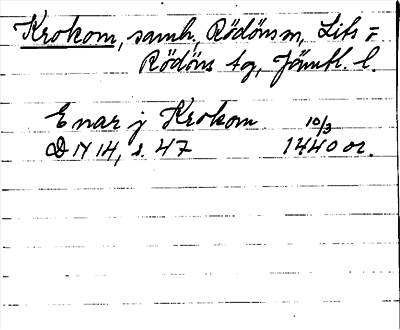 Krokom, samh., Rödöns sn, Lits o
Rödöns tg, Jämtl. l.
Enar j Krokom 10/3
DN 14, s. 47 1440 or.